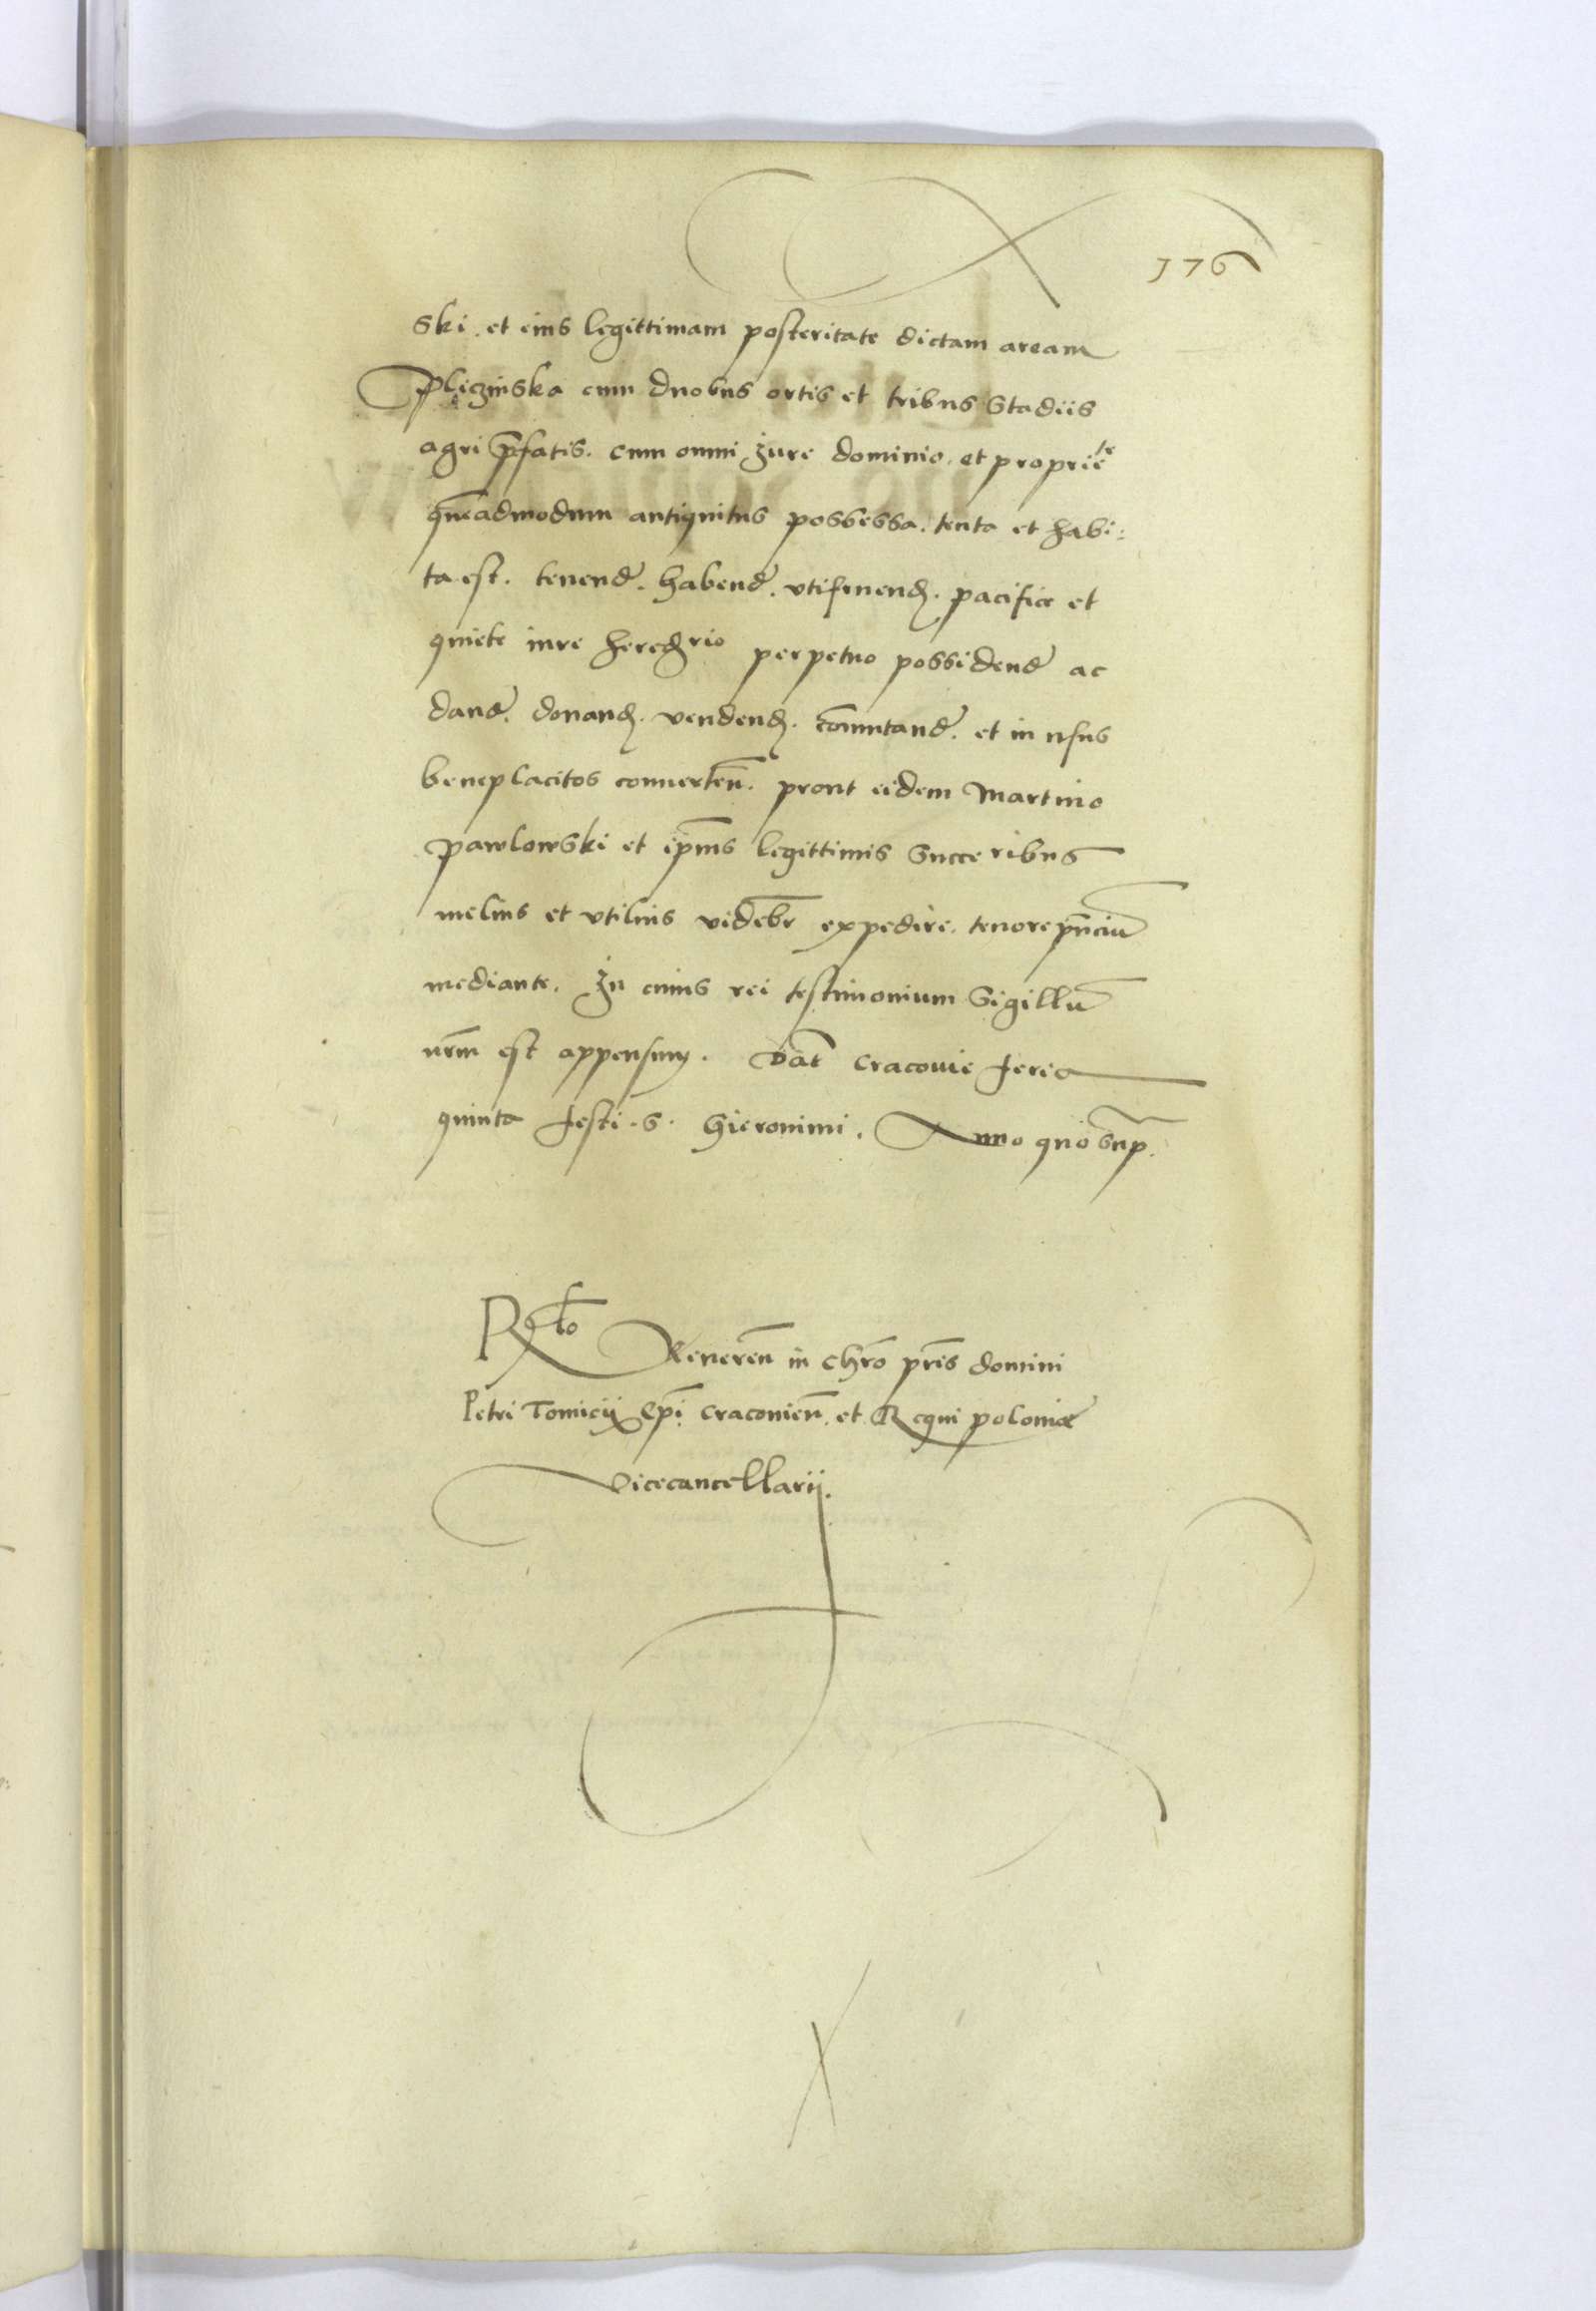 176
ski. et eius legittimam posteritate dictam aream
Plęczinska cum duobus ortis et tribus stadiis
agri p̄fatis. cum omni Jure dominio. et proprietẽ
quẽadmodum antiquitus possessa. tenta et habi:
ta est. tenend. habend. vtifruend. pacifice et
quiete iure hered̄rio perpetuo possidend ac
dand. donand. vendend. com̄utand. et in usus
beneplacitos conuerten̄. prout eidem Martino
Pawlowski et ip̄ius legittimis Succeribus
melius et vtilius videbr̄ expedire. tenore pn̄ciū
mediante. In cuius rei testimonium Sigillū
nr̄m est appensum. Dat̄ Cracouie feria
quinta festi. S. Hieronimi. Anno quo sup̄.
R̄to Reueren̄ in Chr̄o pr̄is domini
Petri Tomicij Ep̄i. Cracouien̄. et Regni poloniæ
Vicecancellarij.